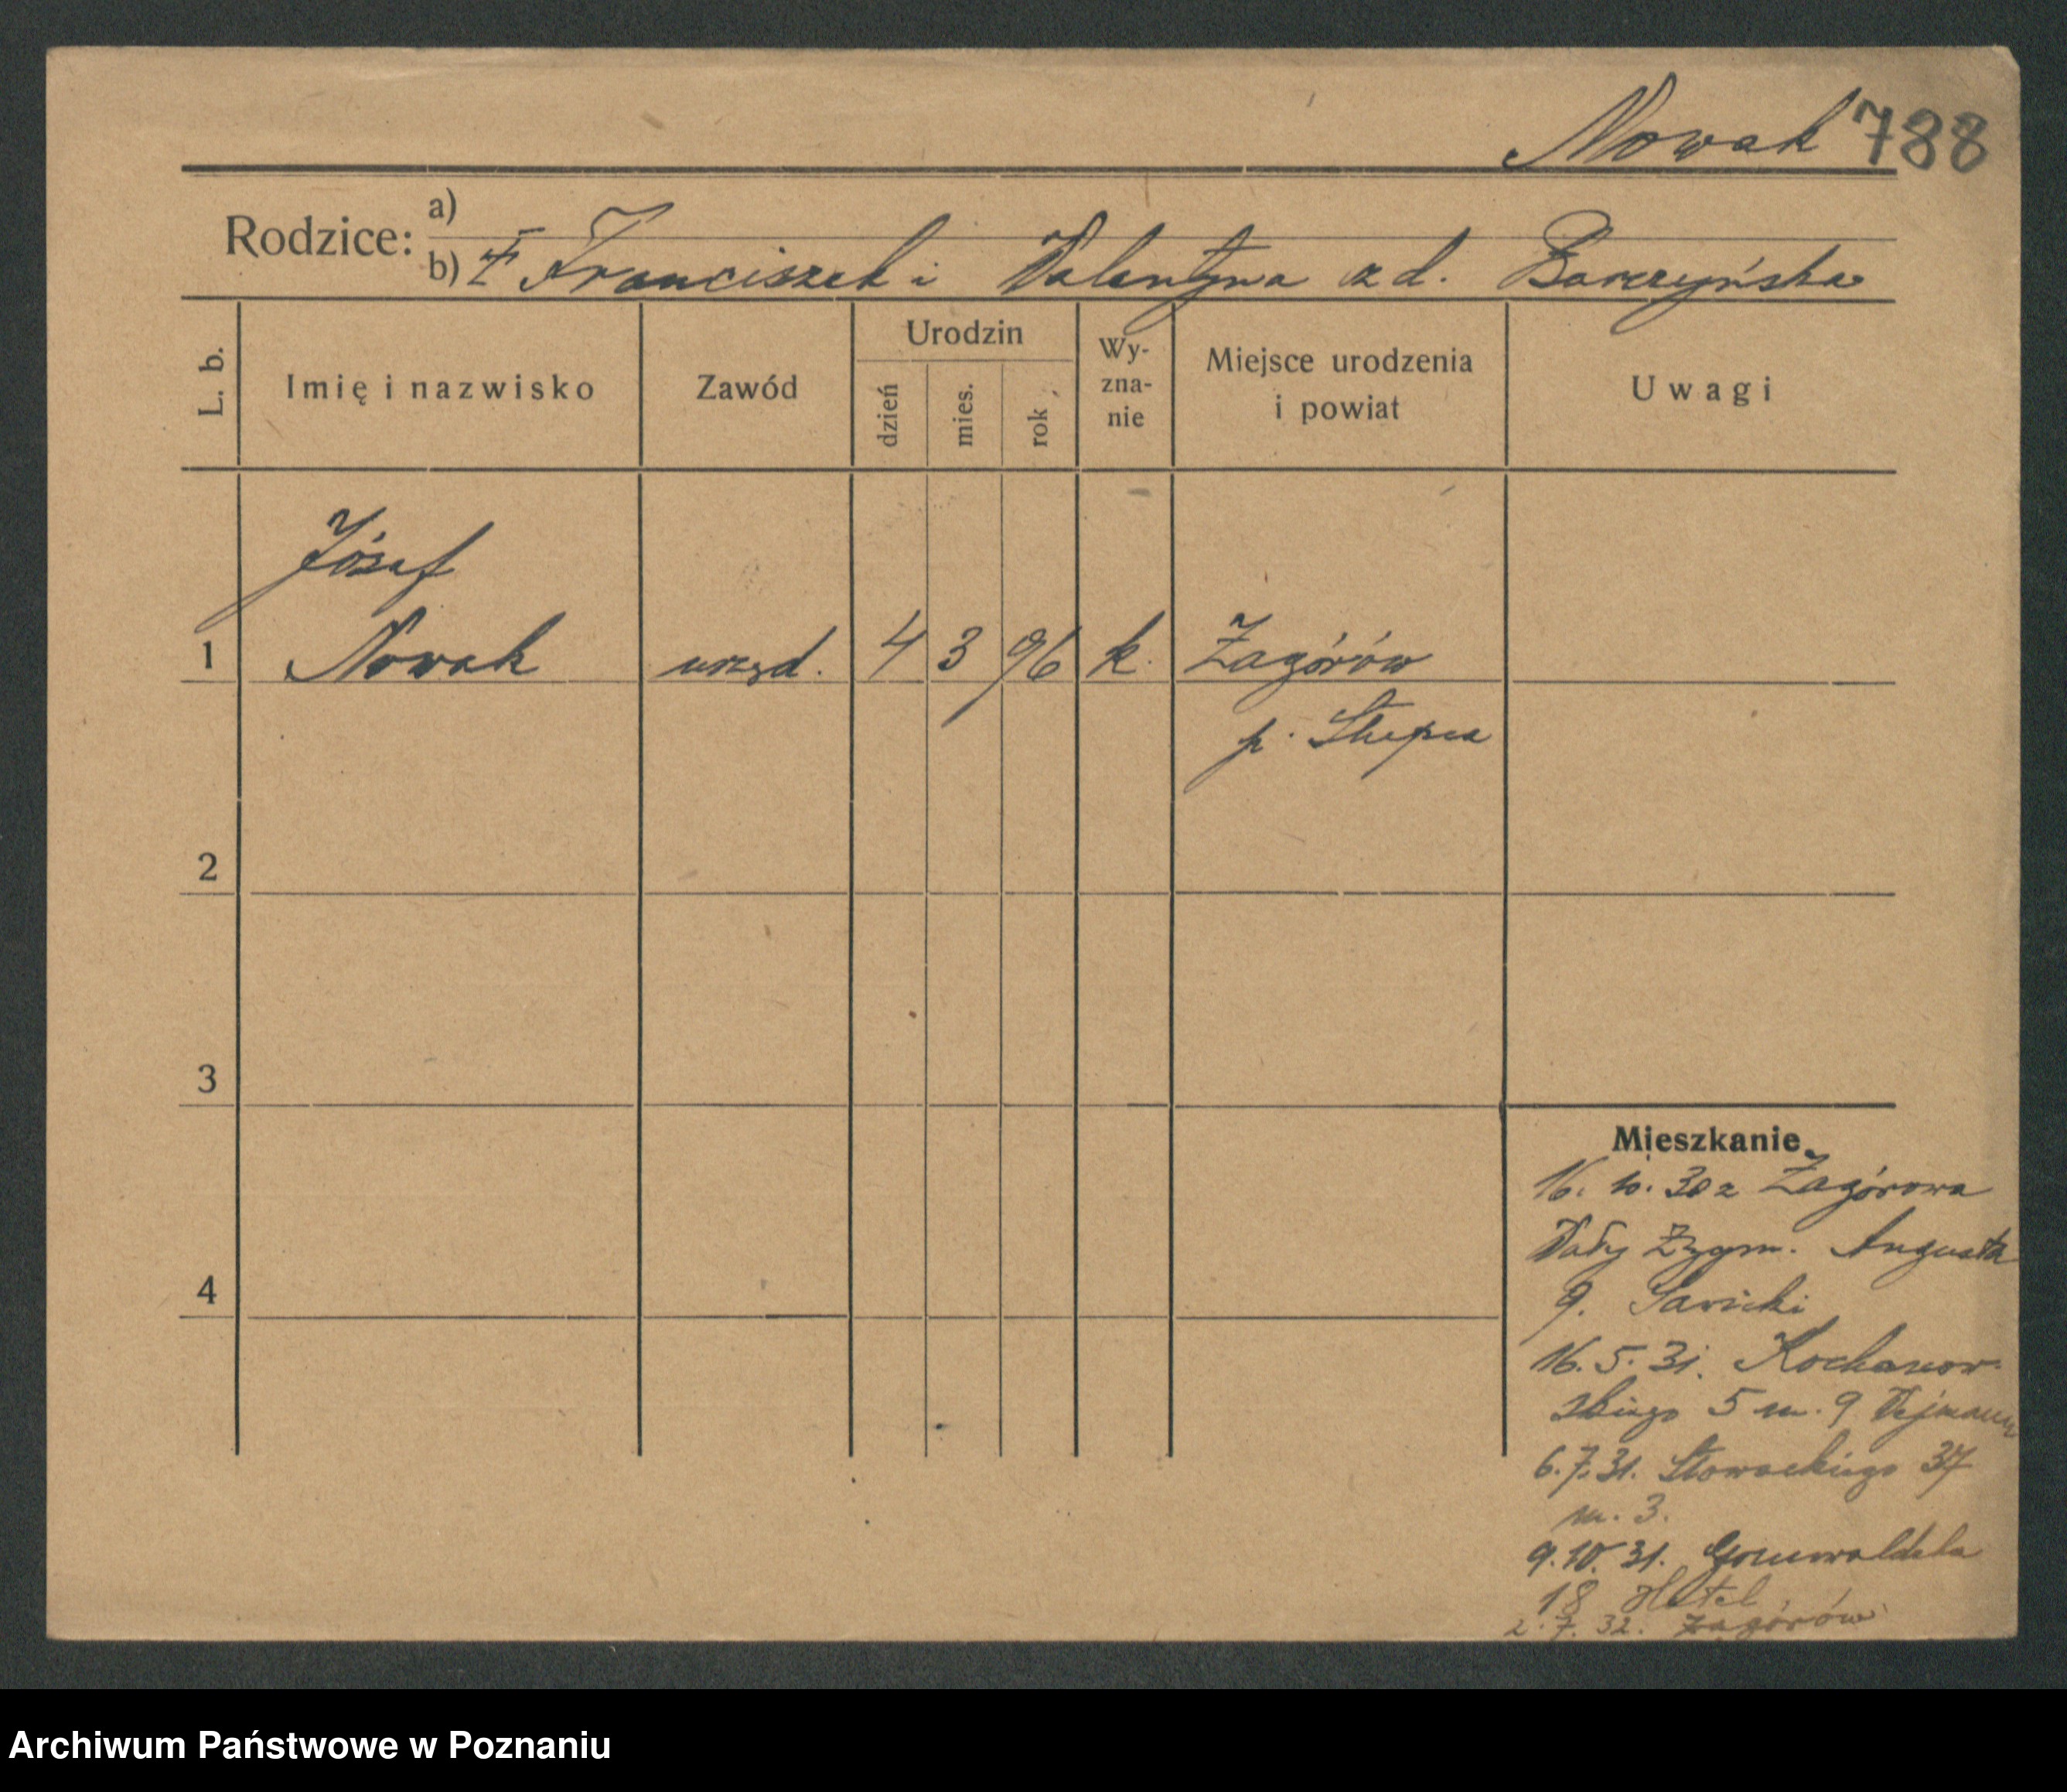 Nowak 788
Rodzice:
a)
b) † Franciszek i Walentyna z d. Barczyńska
L. b.
Imię i nazwisko
Zawód
Urodzin
dzień
mies.
rok
Wy-
zna-
nie
Miejsce urodzenia
i powiat
Uwagi
Józef
1 Nowak urzęd. 4 3 96 k. Zagórów
p. Słupca
2
3
4
Mieszkanie
16. 10. 30 z Zagórowa
Wały Zygm. Augusta
9. Sawicki
16. 5. 31. Kochanow-
skiego 5 m. 9
6.7.31. Słowackiego 37
m. 3.
9.10.31. Grunwaldzka
18 Hotel
2.7.32. Zagórów
Archiwum Państwowe w Poznaniu